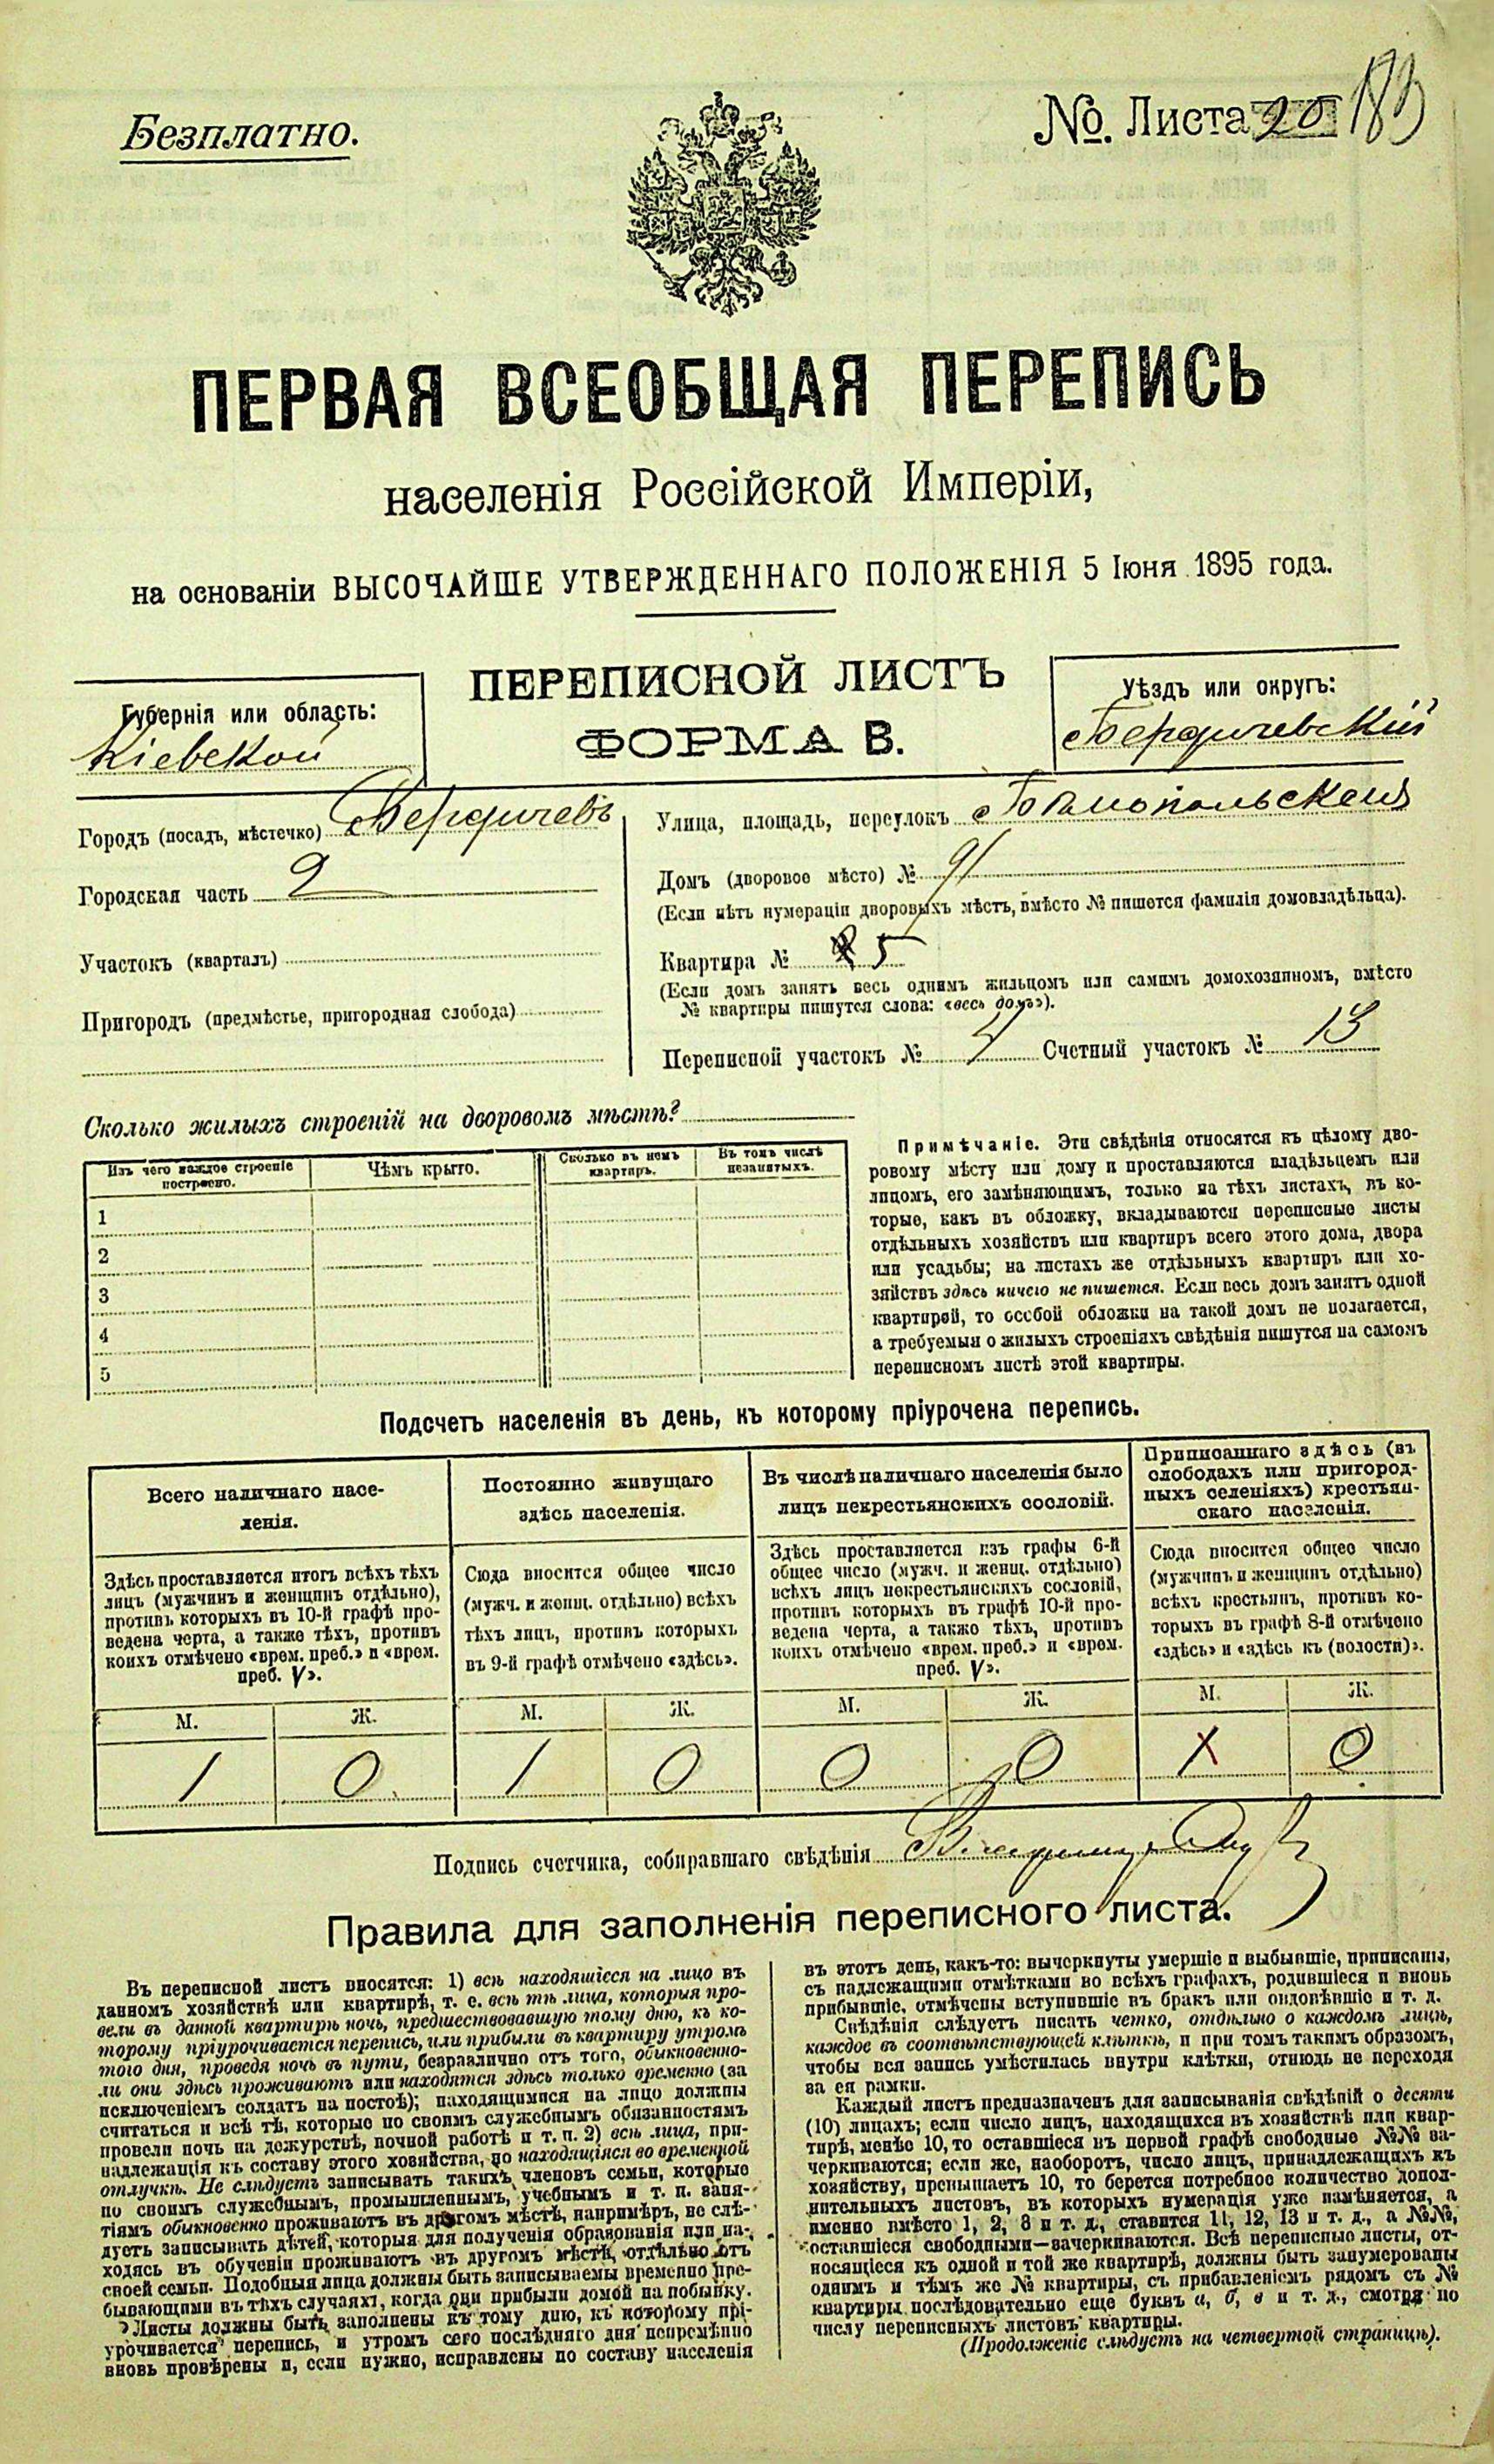 Безплатно.
№. Листа 20 183
ПЕРВАЯ ВСЕОБЩАЯ ПЕРЕПИСЬ
населенія Россійской Имперіи,
на основаніи ВЫСОЧАЙШЕ УТВЕРЖДЕННАГО ПОЛОЖЕНІЯ 5 Іюня 1895 года.
ПЕРЕПИСНОЙ ЛИСТЪ
ФОРМА В.
Губернія или область:
Кіевской
Уѣздъ или округъ:
Бердичевскій
Городъ (посадъ, мѣстечко) Бердичевъ
Городская часть 2
Участокъ (кварталъ)
Пригородъ (предмѣстье, пригородная слобода)
Улица, площадь, переулокъ
Домъ (дворовое мѣсто) № 91
(Если нѣтъ нумераціи дворовыхъ мѣстъ, вмѣсто № пишется фамилія домовладѣльца).
Квартира № 5
(Если домъ занятъ весь однимъ жильцомъ или самимъ домохозяиномъ, вмѣсто
№ квартиры пишутся слова: «весь домъ»).
Переписной участокъ № Счетный участокъ № 13
Сколько жилыхъ строеній на дворовомъ мѣстѣ?
Изъ чего каждое строеніе
построено.
Чѣмъ крыто.
Сколько въ немъ
квартиръ.
Въ томъ числѣ
незанятыхъ.
1
2
3
4
5
Примѣчаніе. Эти свѣдѣнія относятся къ цѣлому дво-
ровому мѣсту или дому и проставляются владѣльцемъ или
лицомъ, его замѣняющимъ, только на тѣхъ листахъ, въ ко-
торые, какъ въ обложку, вкладываются переписные листы
отдѣльныхъ хозяйствъ или квартиръ всего этого дома, двора
или усадьбы; на листахъ же отдѣльныхъ квартиръ или хо-
зяйствъ здѣсь ничего не пишется. Если весь домъ занятъ одной
квартирой, то особой обложки на такой домъ не полагается,
а требуемыя о жилыхъ строеніяхъ свѣдѣнія пишутся на самомъ
переписномъ листѣ этой квартиры.
Подсчетъ населенія въ день, къ которому пріурочена перепись.
Всего наличнаго насе-
ленія.
Здѣсь проставляется итогъ всѣхъ тѣхъ
лицъ (мужчинъ и женщинъ отдѣльно),
противъ которыхъ въ 10-й графѣ про-
ведена черта, а также тѣхъ, противъ
коихъ отмѣчено «врем. преб.» и «врем.
преб. V».
Постоянно живущаго
здѣсь населенія.
Сюда вносится общее число
(мужч. и женщ. отдѣльно) всѣхъ
тѣхъ лицъ, противъ которыхъ
въ 9-й графѣ отмѣчено «здѣсь».
Въ числѣ наличнаго населенія было
лицъ некрестьянскихъ сословій.
Здѣсь проставляется изъ графы 6-й
общее число (мужч. и женщ. отдѣльно)
всѣхъ лицъ некрестьянскихъ сословій,
противъ которыхъ въ графѣ 10-й про-
ведена черта, а также тѣхъ, противъ
коихъ отмѣчено «врем. преб.» и «врем.
преб. V».
Приписаннаго здѣсь (въ
слободахъ или пригород-
ныхъ селеніяхъ) крестьян-
скаго населенія.
Сюда вносится общее число
(мужчинъ и женщинъ отдѣльно)
всѣхъ крестьянъ, противъ ко-
торыхъ въ графѣ 8-й отмѣчено
«здѣсь» и «здѣсь къ (волости)».
М. Ж. М. Ж. М. Ж. М. Ж.
1 0 1 0 0 0 0
Подпись счетчика, собиравшаго свѣдѣнія
Правила для заполненія переписного листа.
Въ переписной листъ вносятся: 1) всѣ находящіеся на лицо въ
данномъ хозяйствѣ или квартирѣ, т. е. всѣ тѣ лица, которыя про-
вели въ данной квартирѣ ночь, предшествовавшую тому дню, къ ко-
торому пріурочивается перепись, или прибыли въ квартиру утромъ
того дня, проведя ночь въ пути, безразлично отъ того, обыкновенно-
ли они здѣсь проживаютъ или находятся здѣсь только временно (за
исключеніемъ солдатъ на постоѣ); находящимися на лицо должны
считаться и всѣ тѣ, которые по своимъ служебнымъ обязанностямъ
провели ночь на дежурствѣ, ночной работѣ и т. п. 2) всѣ лица, при-
надлежащія къ составу этого хозяйства, но находящіяся во временной
отлучкѣ. Не слѣдуетъ записывать такихъ членовъ семьи, которые
по своимъ служебнымъ, промышленнымъ, учебнымъ и т. п. заня-
тіямъ обыкновенно проживаютъ въ другомъ мѣстѣ, напримѣръ, не слѣ-
дуетъ записывать дѣтей, которыя для полученія образованія или на-
ходясь въ обученіи проживаютъ въ другомъ мѣстѣ, отдѣльно отъ
своей семьи. Подобныя лица должны быть записываемы временно пре-
бывающими въ тѣхъ случаяхъ, когда они прибыли домой на побывку.
Листы должны быть заполнены къ тому дню, къ которому прі-
урочивается перепись, и утромъ сего послѣдняго дня непремѣнно
вновь провѣрены и, если нужно, исправлены по составу населенія
въ этотъ день, какъ-то: вычеркнуты умершіе и выбывшіе, приписаны,
съ надлежащими отмѣтками во всѣхъ графахъ, родившіеся и вновь
прибывшіе, отмѣчены вступившіе въ бракъ или овдовѣвшіе и т. д.
Свѣдѣнія слѣдуетъ писать четко, отдѣльно о каждомъ лицѣ,
каждое въ соотвѣтствующей клѣткѣ, и при томъ такимъ образомъ,
чтобы вся запись умѣстилась внутри клѣтки, отнюдь не переходя
за ея рамки.
Каждый листъ предназначенъ для записыванія свѣдѣній о десяти
(10) лицахъ; если число лицъ, находящихся въ хозяйствѣ или квар-
тирѣ, менѣе 10, то оставшіеся въ первой графѣ свободные №№ за-
черкиваются; если же, наоборотъ, число лицъ, принадлежащихъ къ
хозяйству, превышаетъ 10, то берется потребное количество допол-
нительныхъ листовъ, въ которыхъ нумерація уже измѣняется, а
именно вмѣсто 1, 2, 3 и т. д., ставится 11, 12, 13 и т. д., а №№,
оставшіеся свободными—зачеркиваются. Всѣ переписные листы, от-
носящіеся къ одной и той же квартирѣ, должны быть занумерованы
однимъ и тѣмъ же № квартиры, съ прибавленіемъ рядомъ съ №
квартиры послѣдовательно еще буквъ а, б, в и т. д., смотря по
числу переписныхъ листовъ квартиры.
(Продолженіе слѣдуетъ на четвертой страницѣ).